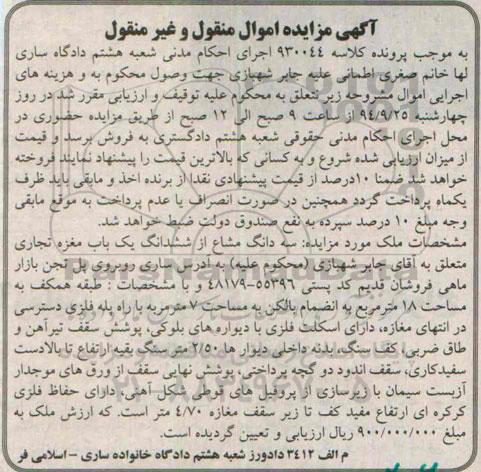 آگهی مزایده اموال منقول و غیر منقول
به موجب پرونده کلاسه ۹۳۰۰۴۴ اجرای احکام مدنی شعبه هشتم دادگاه ساری
لها خانم صغری اطمانی علیه جابر شهبازی جهت وصول محکوم به و هزینه های
اجرایی اموال مشروحه زیر متعلق به محکوم علیه توقیف و ارزیابی مقرر شد در روز
چهارشنبه ۹۴/۹/۲۵ از ساعت ۹ صبح الی ۱۲ صبح از طریق مزایده حضوری در
محل اجرای احکام مدنی حقوقی شعبه هشتم دادگستری به فروش برسد و قیمت
از میزان ارزیابی شده شروع و به کسانی که بالاترین قیمت را پیشنهاد نمایند فروخته
خواهد شد ضمنا ۱۰درصد از قیمت پیشنهادی نقدا از برنده اخذ و مابقی باید ظرف
یکماه پرداخت گردد همچنین در صورت انصراف یا عدم پرداخت به موقع مابقی
وجه مبلغ ۱۰ درصد سپرده به نفع صندوق دولت ضبط خواهد شد.
مشخصات ملک مورد مزایده: سه دانگ مشاع از ششدانگ یک باب مغزه تجاری
متعلق به آقای جابر شهبازی (محکوم علیه) به آدرس ساری روبروی پل تجن بازار
ماهی فروشان قدیم کد پستی ۵۵۳۹۶-۴۸۱۷۹ و با مشخصات : طبقه همکف به
مساحت ۱۸ مترمربع به انضمام بالکن به مساحت ۷ مترمربه با راه پله فلزی دسترسی
در انتهای مغازه، دارای اسکلت فلزی با دیواره های بلوکی، پوشش سقف تیرآهن و
طاق ضربی، کف سنگ، بدنه داخلی دیوار ها ۲/۵۰ متر سنگ بقیه ارتفاع تا بالادست
سفیدکاری، سقف اندود دو گچه پرداختی، پوشش نهایی سقف از ورق های موجدار
آزبست سیمان با زیرسازی از پروفیل های قوطی شکل آهنی، دارای حفاظ فلزی
کرکره ای ارتفاع مفید کف تا زیر سقف مغازه ۴/۷۰ متر است. که ارزش ملک به
مبلغ ۹۰۰/۰۰۰/۰۰۰ ریال ارزیابی و تعیین گردیده است.
م الف ۳۴۱۲ دادورز شعبه هشتم دادگاه خانواده ساری - اسلامی فر